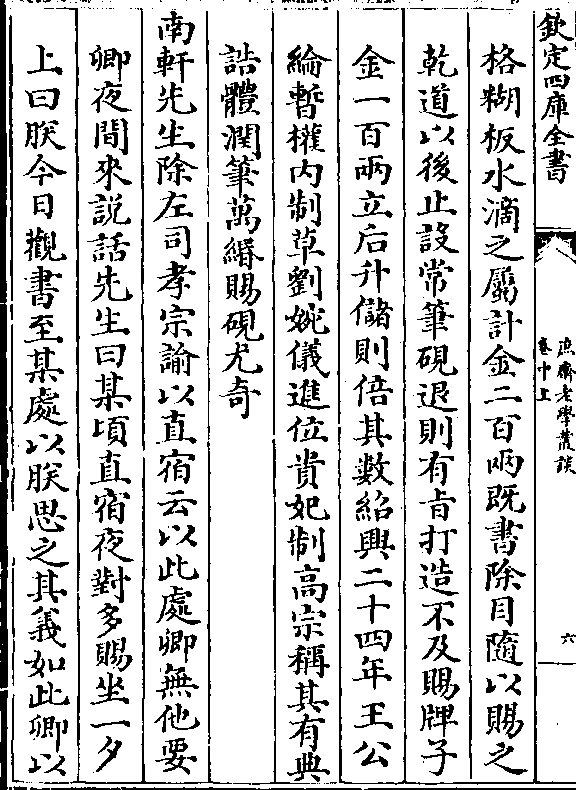 欽定四庫全書
庶齋老學叢談
卷中上
六
格糊板水滴之屬計金二百兩既書除目隨以賜之
乾道以後止設常筆硯退則有旨打造不及賜牌子
金一百兩立后升儲則倍其數紹興二十四年王公
綸暫權内制草劉婉儀進位貴妃制高宗稱其有典
誥體潤筆萬緡賜硯尤奇
南軒先生除左司孝宗諭以直宿云以此處卿無他要
卿夜間來説話先生曰某頃直宿夜對多賜坐一夕
上曰朕今日觀書至某處以朕思之其義如此卿以